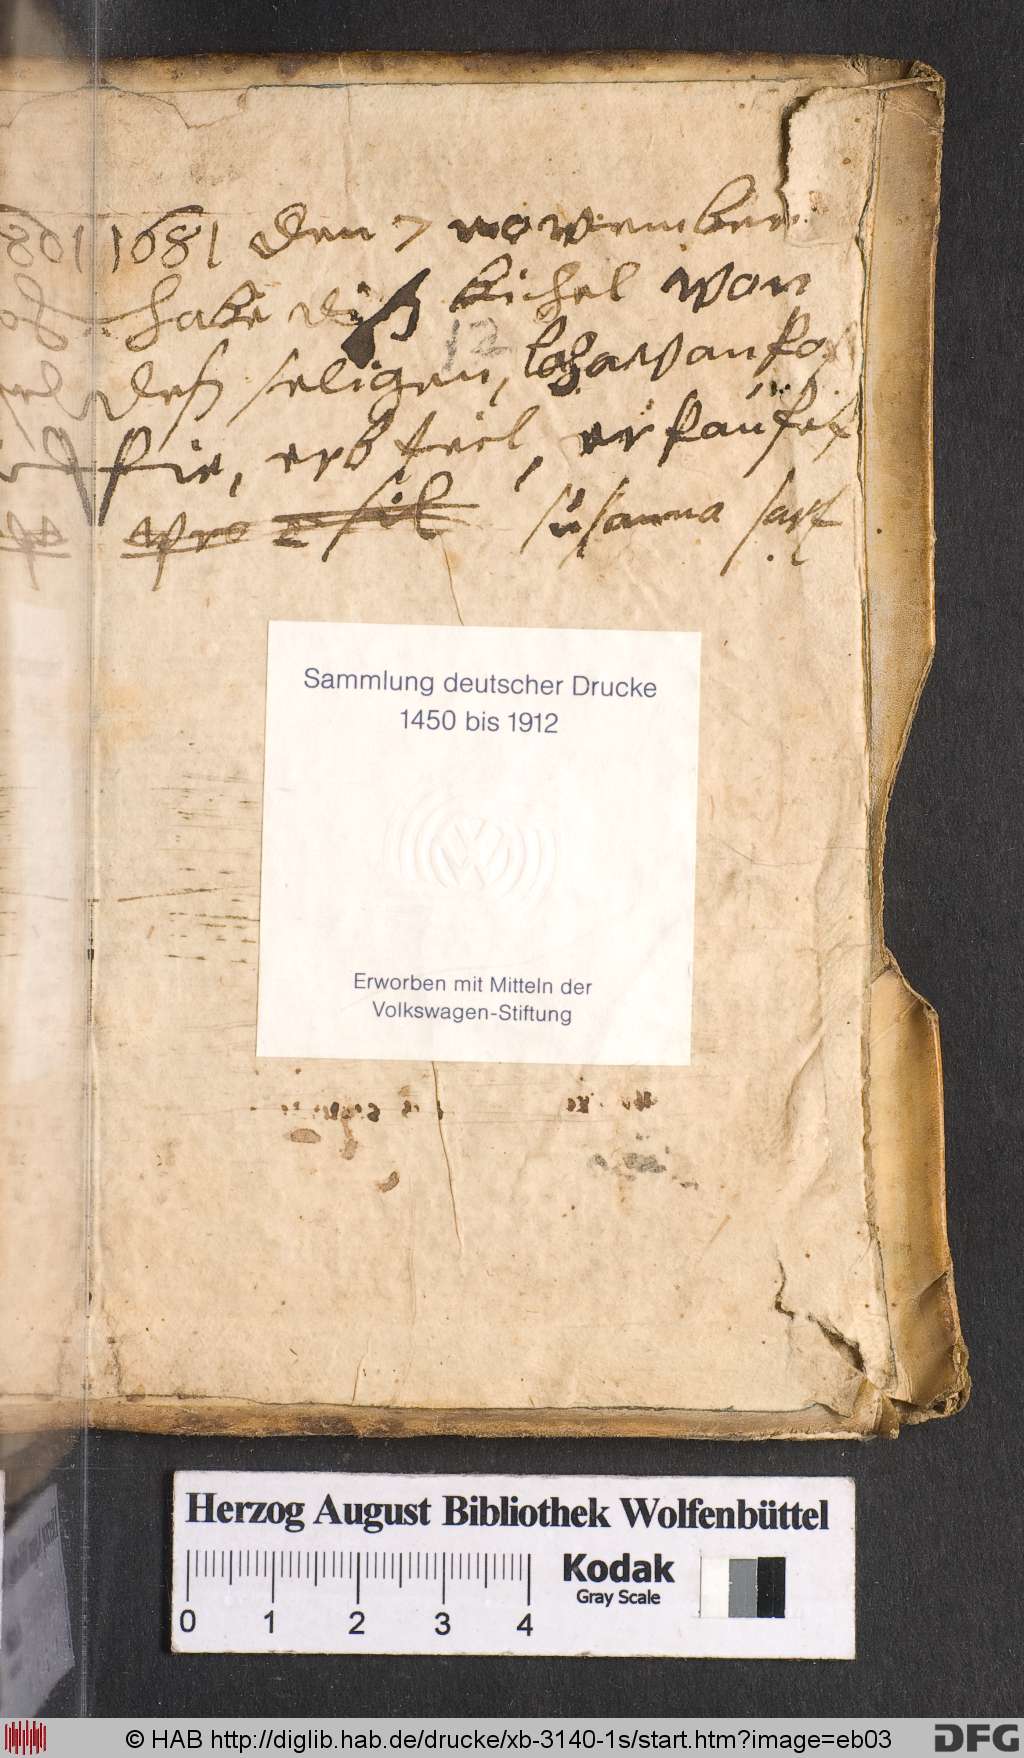 1681 den 7 November
habe diß bichel von
deß seligen,
sie, erb teil, erkaufet
pro 2 sil susanna
12
Sammlung deutscher Drucke
1450 bis 1912
Erworben mit Mitteln der
Volkswagen-Stiftung
Herzog August Bibliothek Wolfenbüttel
Kodak
Gray Scale
0 1 2 3 4
© HAB http://diglib.hab.de/drucke/xb-3140-1s/start.htm?image=eb03
DFG